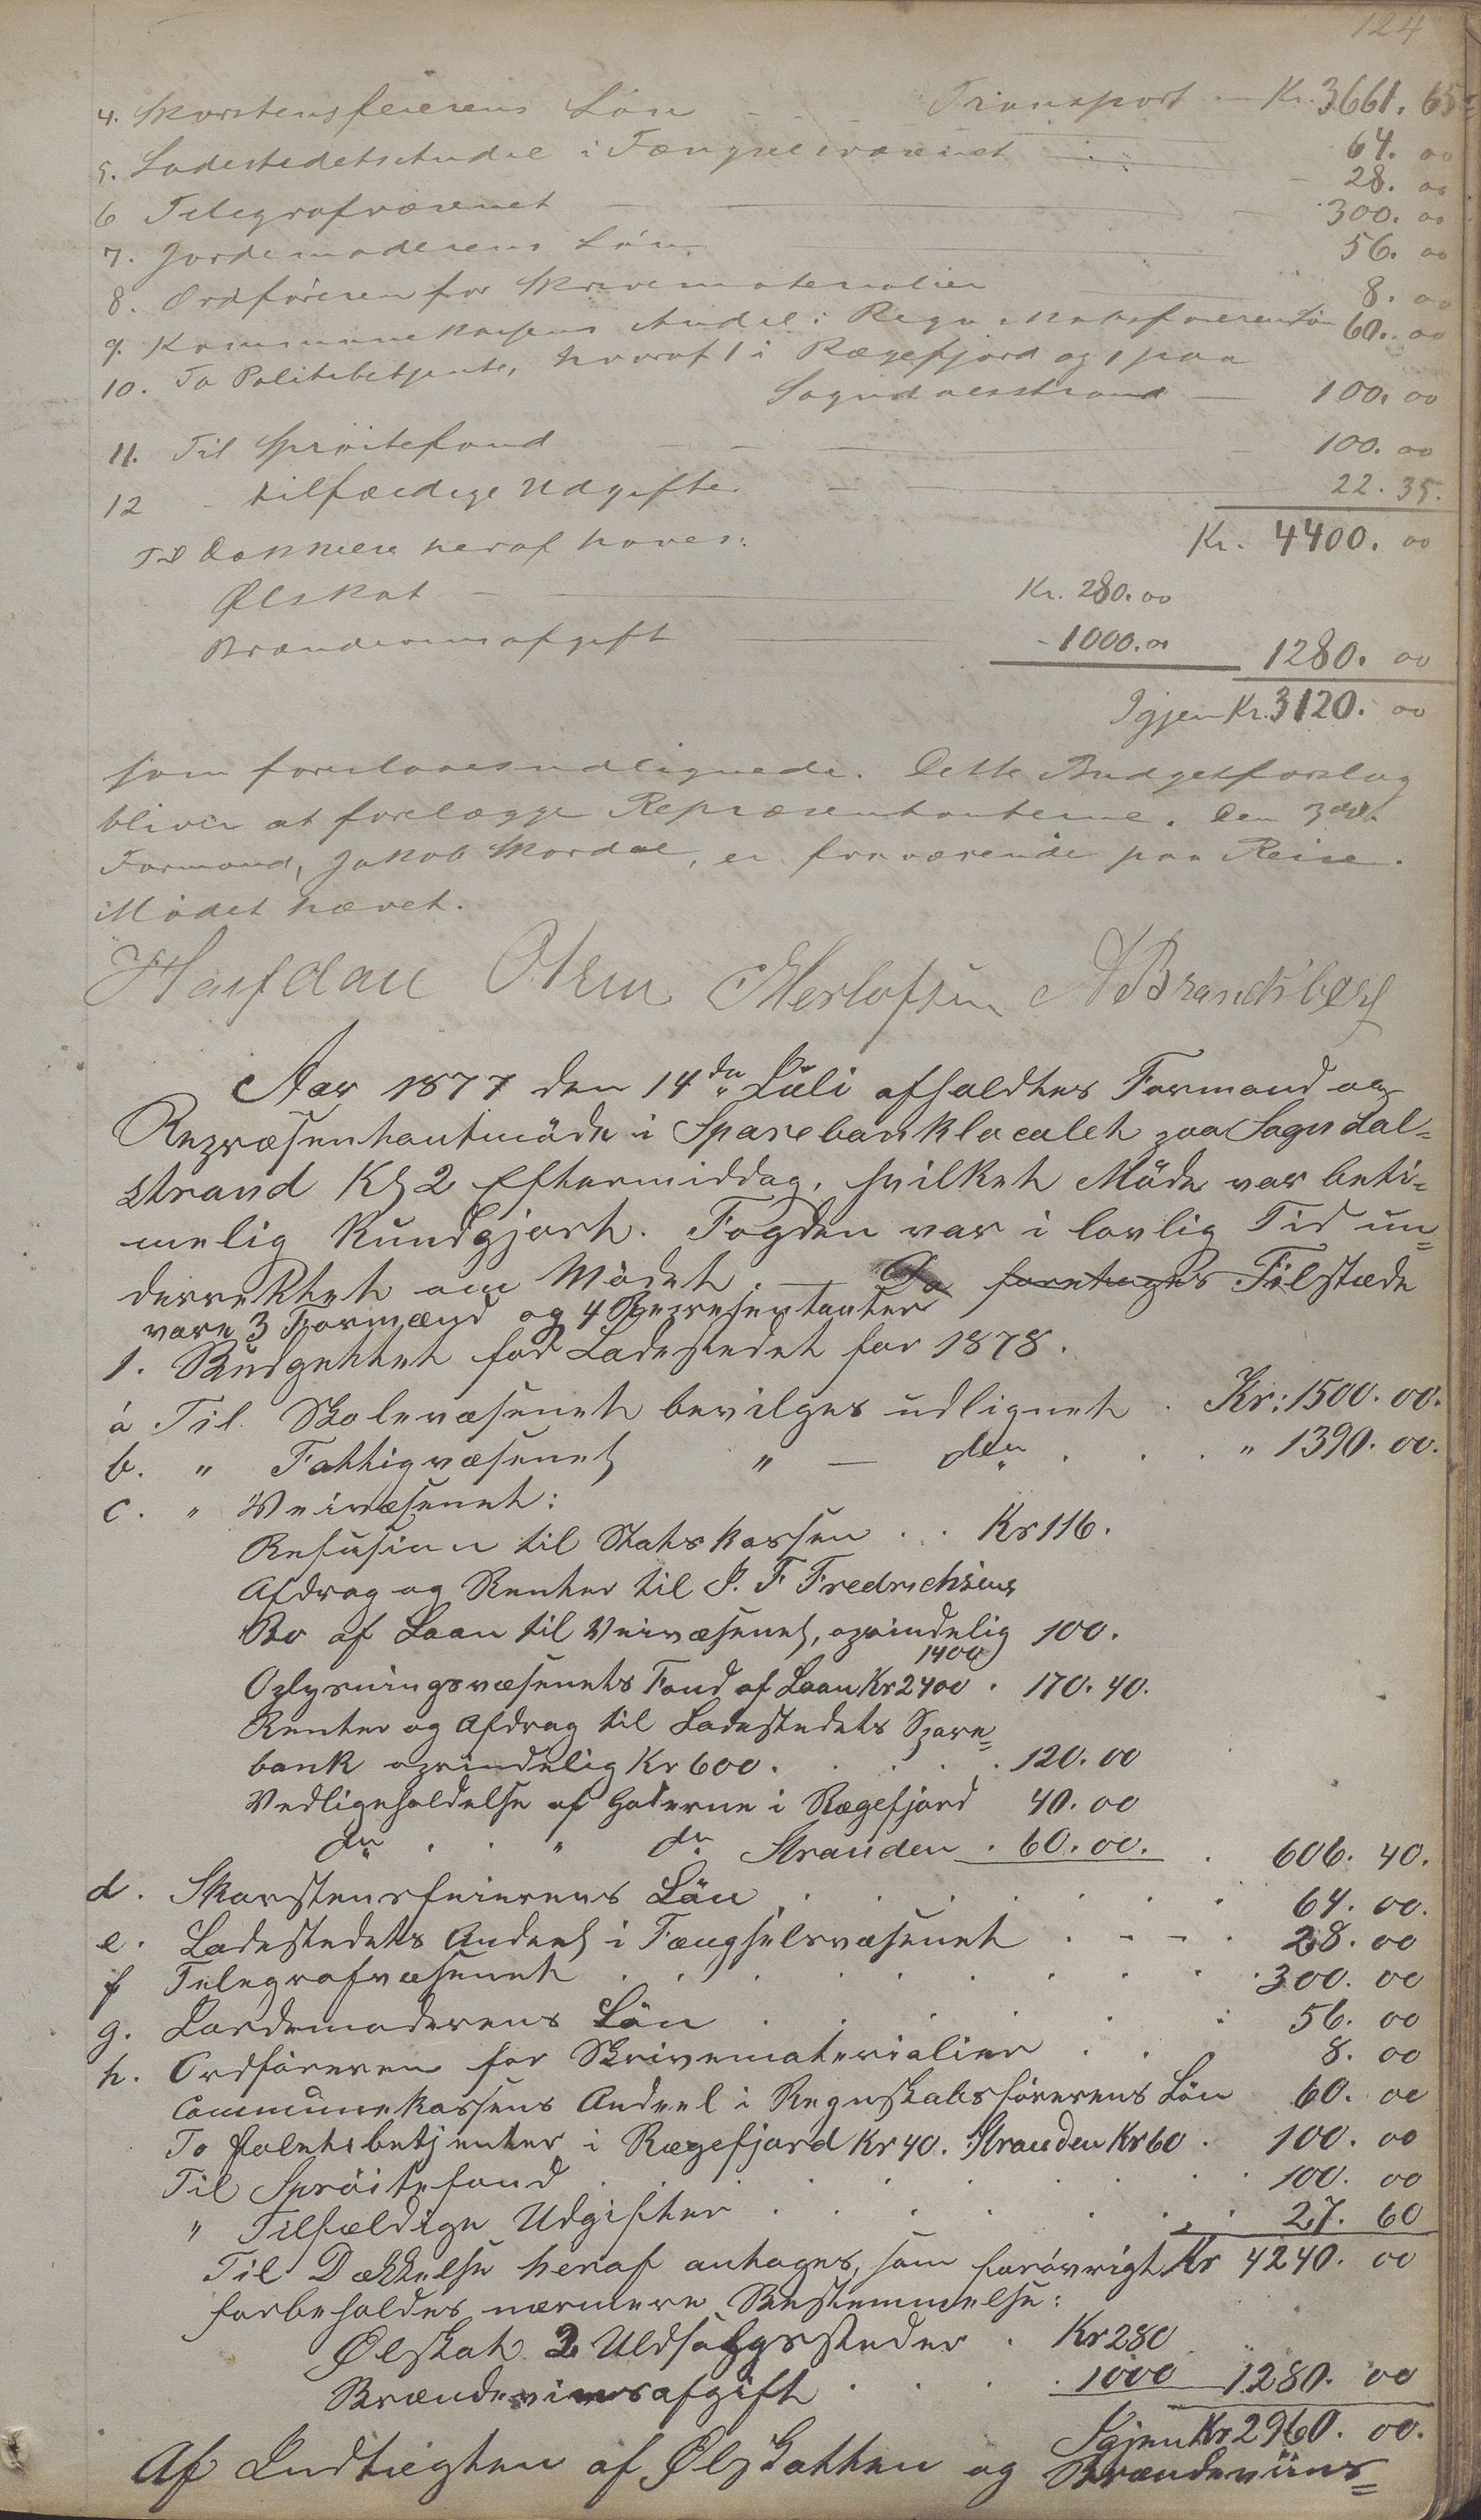 124
Transport - Kr. 3661. 65
4. Skorstensfeierens Løn - - 64. 00
5. Ladestedets Andel i Fængselsvæsenet - 28. 00
6 Telegrafvæsenet - 300. 00
7. Jordemoderens Løn - 56. 00
8. Ordføreren for Skrivematerialier 8. 00
9. Kommunekassens Andel i Regnskabsførerens Løn 60. 00
10. To Politibetjente, hvoraf 1 i Rægefjord og 1 paa
Sogndalsstrand - 100. 00
11. Til Sprøitefond - - 100. 00
12 - tilfældige Udgifter - 22. 35.
Kr. 4400. 00
Til Dækkelse heraf haves:
Ølskat - Kr. 280. 00
Brændevinsafgift - 1000. 00 1280. 00
Igjen Kr. 3120. 00
som foreslaaes udlignede. Dette Budgetforslag
bliver at forelægge Repræsentanterne. Den 3die
Formand, Jakob Skordal, er fraværende paa Reise.
Mødet hævet.
Halfdan Olsen Herlofsen A Brandsberg
Aar 1877 den 14de Juli afholdtes Formand og
Repræsentantmøde i Sparebanklocalet paa Sogndal=
strand Kl 2 Eftermiddag, hvilket Møde var beti=
melig kundgjort. Fogden var i lovlig Tid un=
derrettet om Mødet. — Da foretoges Tilstæde
vare 3 Formænd og 4 Representanter
1. Budgettet for Ladestedet for 1878.
a Til Skolevæsenet bevilges udlignet. Kr: 1500. 00.
b. " Fattigvæsenet " — do . . . " 1390. 00.
c. " Veivæsenet:
Refusion til Statskassen . . Kr 116.
Afdrag og Renter til J. F Fredrichsens
Bo af Laan til Veivæsenet, oprindelig 100.
1400
Oplysningsvæsenets Fond af Laan Kr 2400 . 170. 40.
Renter og Afdrag til Ladestedets Spare=
bank oprindelig Kr 600 . . . . 120. 00
Vedligeholdelse af Gaderne i Rægefjord 40. 00
do . . " do Stranden . 60. 00. . 606. 40.
d. Skorstensfeierens Løn . . . . . . 64. 00.
e. Ladestedets Andeel i Fængselsvæsenet . - - . 28. 00
f Telegrafvæsenet . . . . . . . . 300. 00
g. Jordemoderens Løn . . . . : 56. 00
h. Ordføreren for Skrivematerialier . . 8. 00
Communekassens Andeel i Regnskabsførerens Løn 60. 00
To Politibetjenter i Rægefjord Kr 40. Stranden Kr 60 . 100. 00
Til Sprøitefond . . . . . . . . 100. 00
" Tilfældige Udgifter . . . . . . 27. 60
Til Dækkelse heraf antages, som forøvrigt Kr 4240. 00
forbeholdes nærmere Bestemmelse:
Ølskat 2 Uldsalgssteder . Kr 280
Brændevinsafgift . . . . 1000 1280. 00
Igjen Kr 2960. 00.
Af Indtægten af Ølskatten og Brændeviins=